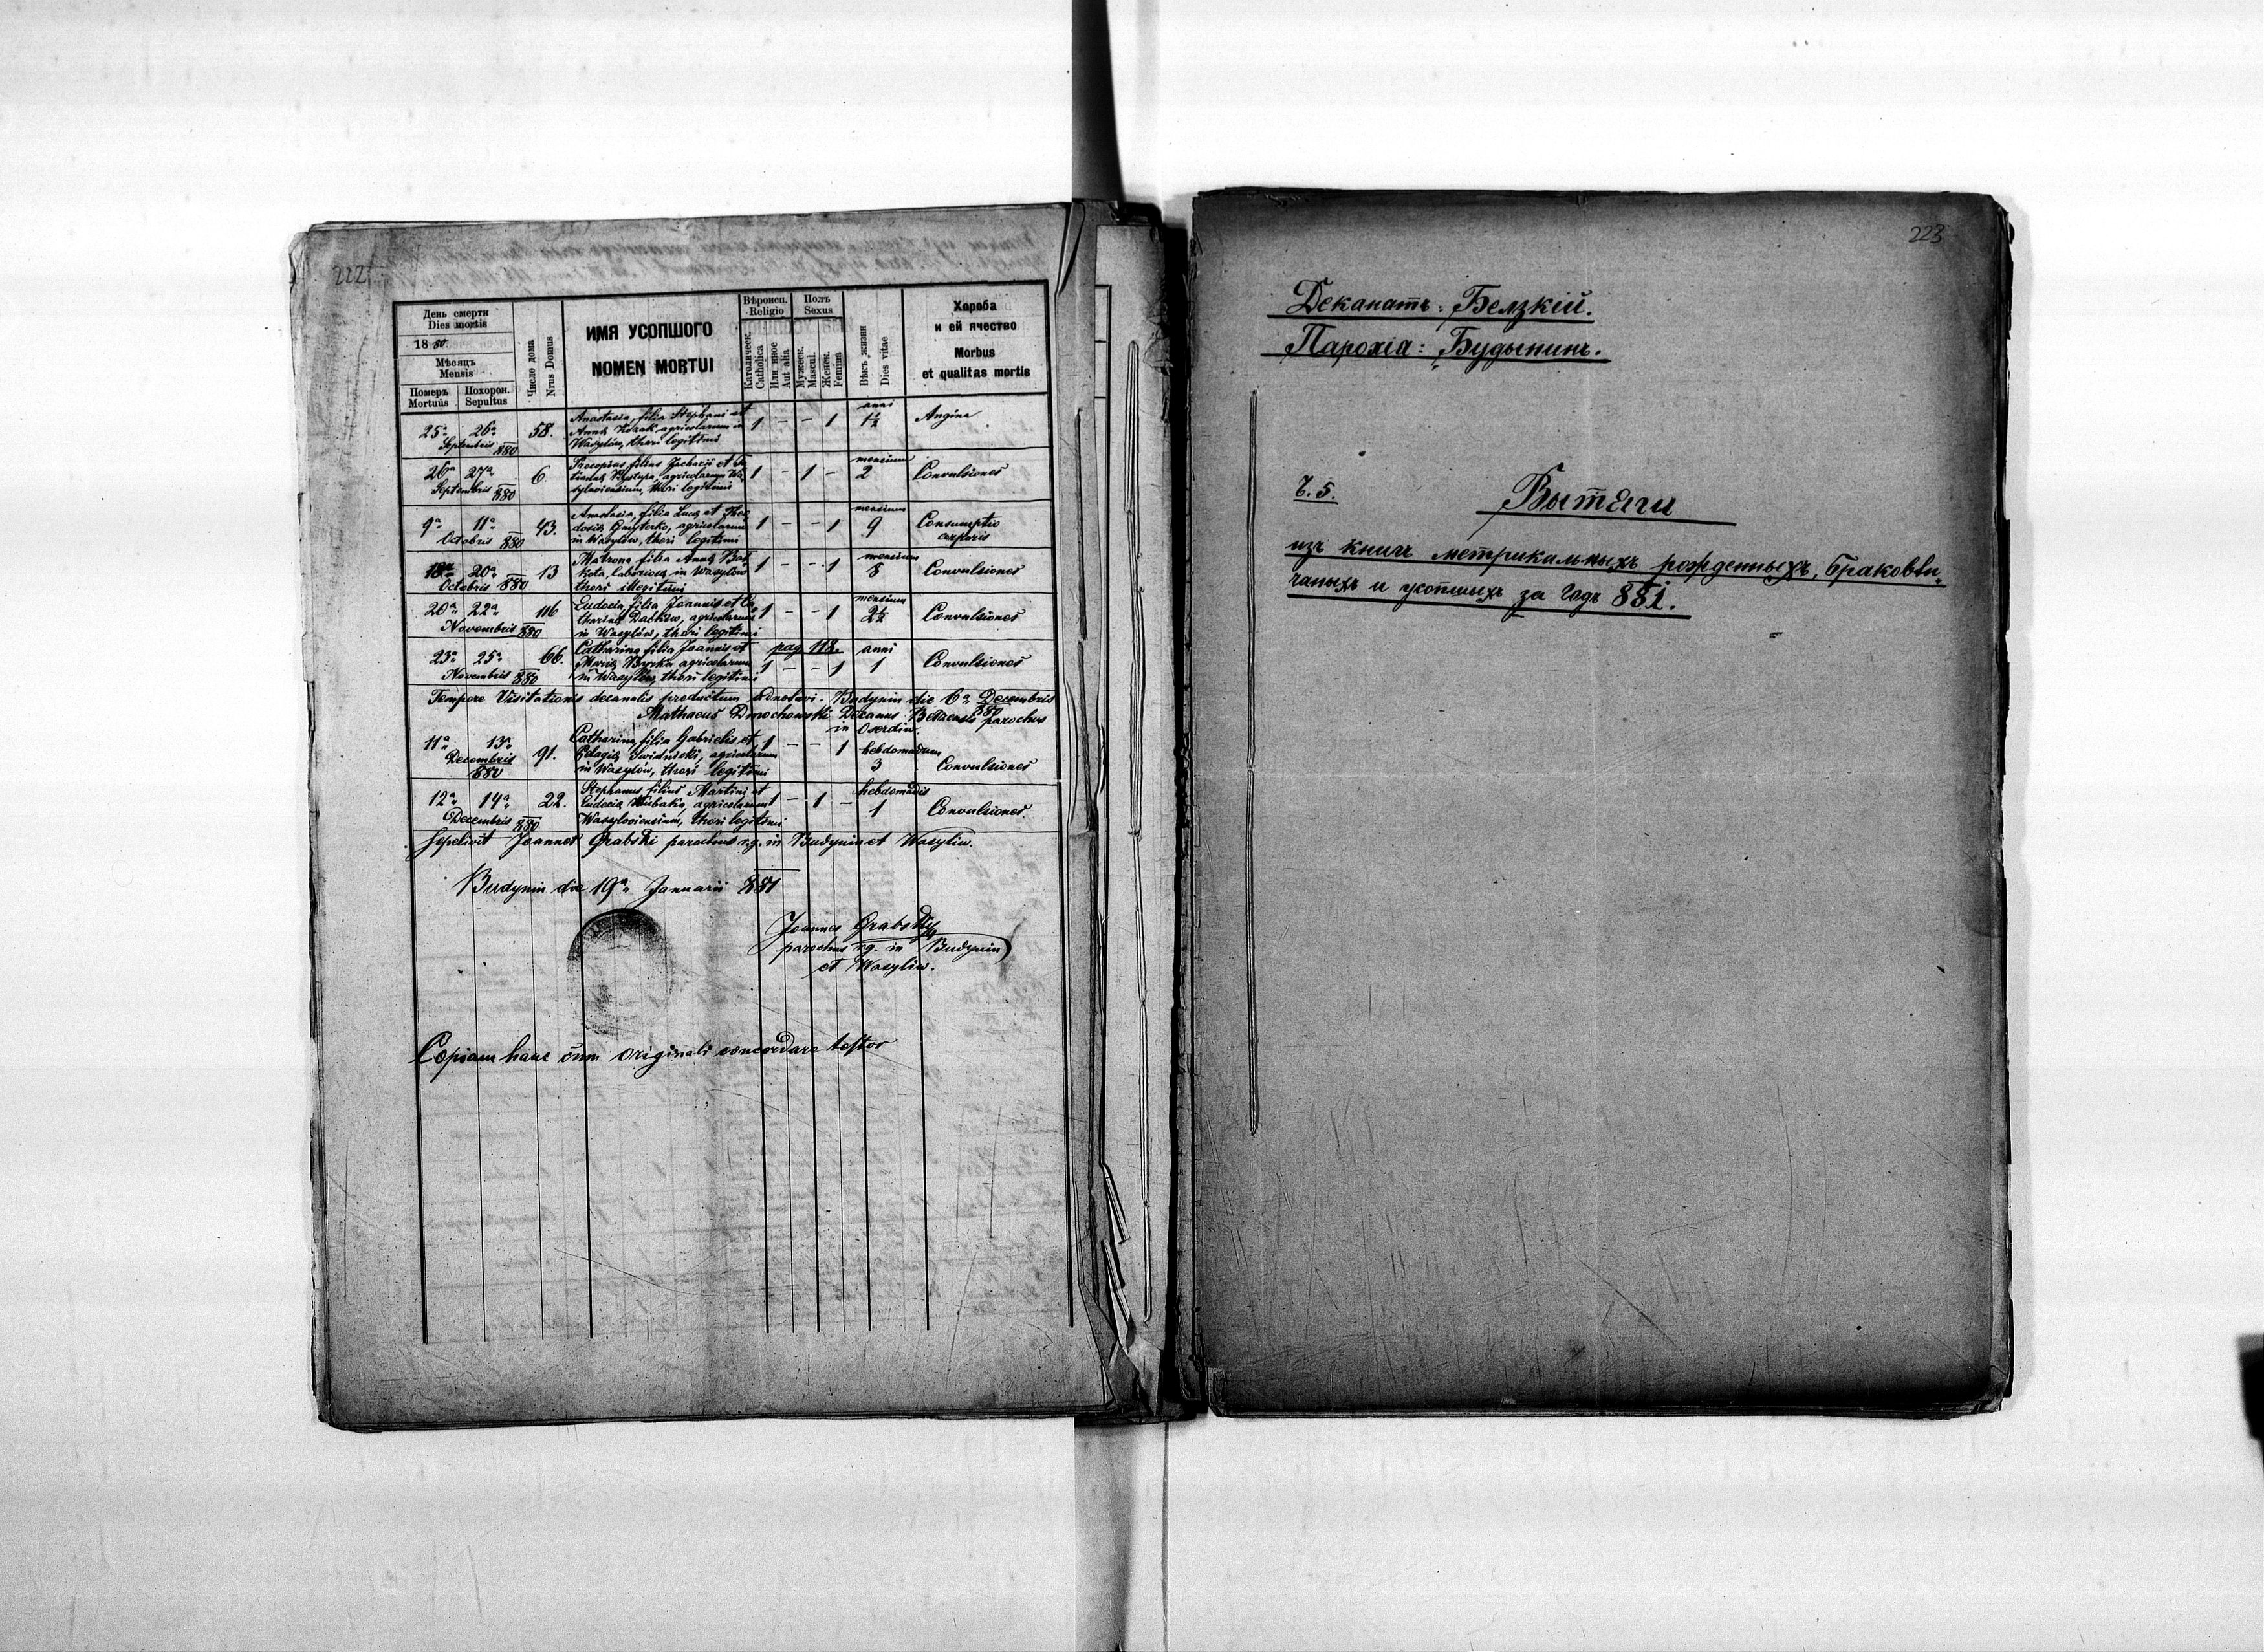 222
День смерти
Dies mortis
1880
Мѣсяцъ
Mensis
Померъ
Mortuus
Похорон.
Sepultus
Число дома
Nrus Domus
ИМЯ УСОПШОГО
NOMEN MORTUI
Вѣроисп.
Religio
Католическ.
Catholica
Или иное
Aut alia
Полъ
Sexus
Мужеск.
Mascul.
Женск.
Femina
Вѣкъ жизни
Dies vitae
Хороба
и ей ячество
Morbus
et qualitas mortis
Anastasia, filia Stephani et anni
25a 26a 58. Annae agricolarum in 1 - - 1 1½ Angina
Septembris 880 Wasylów, thori legitimi
Procopius, filius Zachariae et mensium
26a 27a 6. agricolarum Wa 1 - 1 - 2 Convulsiones
Septembris 880 sylowiensium, thori legitimi
Anastasia, filia Lucae et Theo mensium
9a 11a 43. dosiae agricolarum 1 - - 1 9 Consumptio
Octobris 880 in Wasylów, thori legitimi corporis
Matrona, filia Annae mensium
18a 20a 13 in Wasylów 1 - - 1 8 Convulsiones
Octobris 880 thori illegitimi
Eudocia, filia Joannis et Ca mensium
20a 22a 116 tharinae agricolarum 1 - - 1 2½ Convulsiones
Novembris 880 in Wasylów, thori legitimi
Catharina filia Joannis et pag. 118. anni
23a 25a 66. Mariae agricolarum 1 - - 1 1 Convulsiones
Novembris 880 in Wasylów, thori legitimi
Tempore Visitationis decanalis productum adnotavi. Budynin die 6a Decembris 880
Mathaeus Dmochowski Decanus Belzensis parochus
in Oserdów.
Catharina, filia Gabrielis et
11a 13a 91. Pelagiae Swidnicki, agricolarum 1 - - 1 hebdomadum
Decembris 880 in Wasylów, thori legitimi 3 Convulsiones
Stephanus, filius Martini et hebdomadis
12a 14a 22. Eudociae agricolarum 1 - 1 - 1 Convulsiones
Decembris 880 Wasylowiensium, thori legitimi
Sepelivit Joannes Grabski parochus r.g. in Budynin et Wasyliw.
Budynin die 19a Januarii 881
Joannes Grabski
parochus r.g. in Budynin
et Wasyliw.
Copiam hanc cum originali concordare testor
223
Деканатъ: Белзкій.
Парохія: Будынинъ.
Ч. 5.
Вытяги
изъ книгъ метрикальныхъ рожденныхъ, браковѣн„
чаныхъ и усопшыхъ за годъ 881.